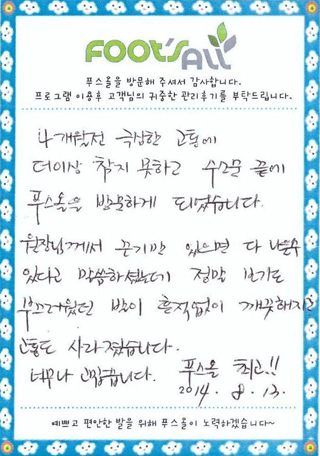 FOOT'S ALL
푸스올을 방문해 주셔서 감사합니다.
프로그램 이용후 고객님의 귀중한 관리후기를 부탁드립니다.
4개월전 극심한 고통에
더이상 참지 못하고 수소문 끝에
푸스올을 방문하게 되었습니다.
원장님께서 끈기만 있으면 다 나을수
있다고 말씀하셨는데 정말 보기도
부끄러웠던 발이 흔적없이 깨끗해지고
고통도 사라졌습니다.
너무나 고맙습니다. 푸스올 최고!!
2014. 8. 13.
예쁘고 편안한 발을 위해 푸스올이 노력하겠습니다~